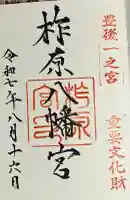 豊後一之宮
重要文化財
柞原八幡宮
令和七年八月十六日